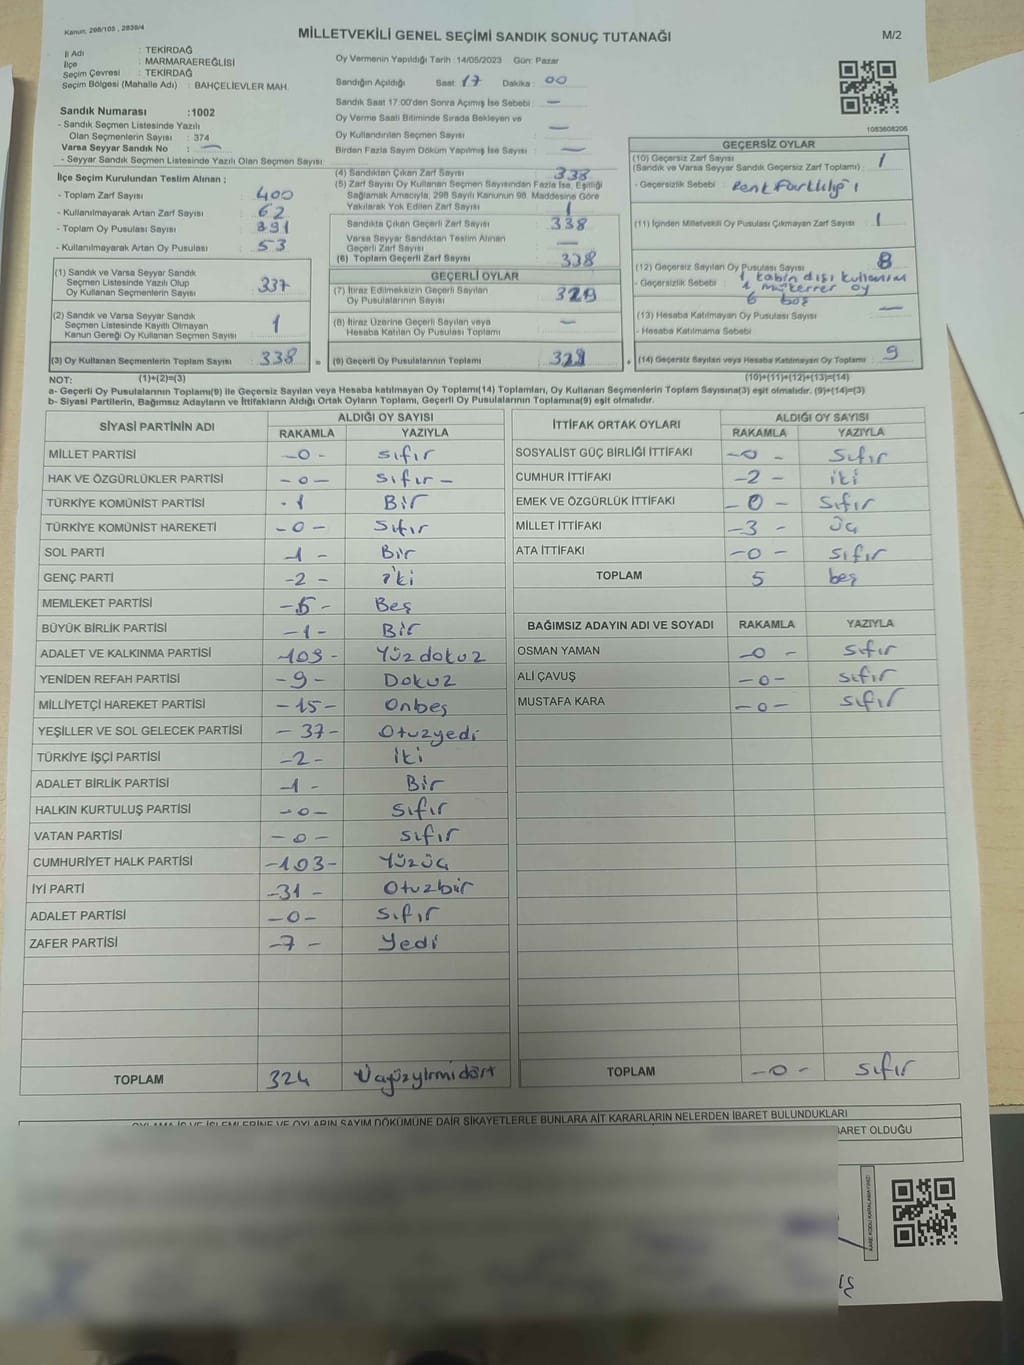 Kanun, 298/105 , 2839/4
MİLLETVEKİLİ GENEL SEÇİMİ SANDIK SONUÇ TUTANAĞI
M/2
İl Adı : TEKİRDAĞ
İlçe : MARMARAEREĞLİSİ
Seçim Çevresi : TEKİRDAĞ
Seçim Bölgesi (Mahalle Adı) : BAHÇELİEVLER MAH.
Sandık Numarası :1002
- Sandık Seçmen Listesinde Yazılı
Olan Seçmenlerin Sayısı : 374
Varsa Seyyar Sandık No : —
- Seyyar Sandık Seçmen Listesinde Yazılı Olan Seçmen Sayısı
İlçe Seçim Kurulundan Teslim Alınan ;
- Toplam Zarf Sayısı : 400
- Kullanılmayarak Artan Zarf Sayısı : 62
- Toplam Oy Pusulası Sayısı : 391
- Kullanılmayarak Artan Oy Pusulası : 53
(1) Sandık ve Varsa Seyyar Sandık
Seçmen Listesinde Yazılı Olup
Oy Kullanan Seçmenlerin Sayısı : 337
(2) Sandık ve Varsa Seyyar Sandık
Seçmen Listesinde Kayıtlı Olmayan
Kanun Gereği Oy Kullanan Seçmen Sayısı : 1
(3) Oy Kullanan Seçmenlerin Toplam Sayısı : 338 =
Oy Vermenin Yapıldığı Tarih :14/05/2023 Gün: Pazar
Sandığın Açıldığı Saat: 17 Dakika : 00
Sandık Saat 17:00'den Sonra Açımış İse Sebebi : —
Oy Verme Saati Bitiminde Sırada Bekleyen ve
Oy Kullandırılan Seçmen Sayısı : —
Birden Fazla Sayım Döküm Yapılmış İse Sayısı : —
(4) Sandıktan Çıkan Zarf Sayısı : 338
(5) Zarf Sayısı Oy Kullanan Seçmen Sayısından Fazla İse, Eşitliği
Sağlamak Amacıyla, 298 Sayılı Kanunun 98. Maddesine Göre
Yakılarak Yok Edilen Zarf Sayısı : 1
Sandıkta Çıkan Geçerli Zarf Sayısı : 338
Varsa Seyyar Sandıktan Teslim Alınan
Geçerli Zarf Sayısı : —
(6) Toplam Geçerli Zarf Sayısı : 338
GEÇERLİ OYLAR
(7) İtiraz Edilmeksizin Geçerli Sayılan
Oy Pusulalarının Sayısı : 329
(8) İtiraz Üzerine Geçerli Sayılan veya
Hesaba Katılan Oy Pusulası Toplamı : —
(9) Geçerli Oy Pusulalarının Toplamı : 329 +
1083608206
GEÇERSİZ OYLAR
(10) Geçersiz Zarf Sayısı : 1
(Sandık ve Varsa Seyyar Sandık Geçersiz Zarf Toplamı)
- Geçersizlik Sebebi : Renk Farklılığı
(11) İçinden Milletvekili Oy Pusulası Çıkmayan Zarf Sayısı : 1
(12) Geçersiz Sayılan Oy Pusulası Sayısı : 8
- Geçersizlik Sebebi : 1 kabin dışı kullanım
1 mükerrer oy
6 boş
(13) Hesaba Katılmayan Oy Pusulası Sayısı : —
- Hesaba Katılmama Sebebi
(14) Geçersiz Sayılan veya Hesaba Katılmayan Oy Toplamı : 9
NOT: (1)+(2)=(3) (10)+(11)+(12)+(13)=(14)
a- Geçerli Oy Pusulalarının Toplamı(9) ile Geçersiz Sayılan veya Hesaba katılmayan Oy Toplamı(14) Toplamları, Oy Kullanan Seçmenlerin Toplam Sayısına(3) eşit olmalıdır. (9)+(14)=(3)
b- Siyasi Partilerin, Bağımsız Adayların ve İttifakların Aldığı Ortak Oyların Toplamı, Geçerli Oy Pusulalarının Toplamına(9) eşit olmalıdır.
SİYASİ PARTİNİN ADI ALDIĞI OY SAYISI
RAKAMLA YAZIYLA
MİLLET PARTİSİ -0- sıfır
HAK VE ÖZGÜRLÜKLER PARTİSİ -0- sıfır-
TÜRKİYE KOMÜNİST PARTİSİ -1 Bir
TÜRKİYE KOMÜNİST HAREKETİ -0- Sıfır
SOL PARTİ -1- Bir
GENÇ PARTİ -2- iki
MEMLEKET PARTİSİ -5- Beş
BÜYÜK BİRLİK PARTİSİ -1- Bir
ADALET VE KALKINMA PARTİSİ -109- Yüzdokuz
YENİDEN REFAH PARTİSİ -9- Dokuz
MİLLİYETÇİ HAREKET PARTİSİ -15- Onbeş
YEŞİLLER VE SOL GELECEK PARTİSİ -37- Otuzyedi
TÜRKİYE İŞÇİ PARTİSİ -2- iki
ADALET BİRLİK PARTİSİ -1- Bir
HALKIN KURTULUŞ PARTİSİ -0- sıfır
VATAN PARTİSİ -0- sıfır
CUMHURİYET HALK PARTİSİ -103- Yüzüç
İYİ PARTİ -31- Otuzbir
ADALET PARTİSİ -0- sıfır
ZAFER PARTİSİ -7- Yedi
TOPLAM 324 Üçyüzyirmidört
İTTİFAK ORTAK OYLARI ALDIĞI OY SAYISI
RAKAMLA YAZIYLA
SOSYALİST GÜÇ BİRLİĞİ İTTİFAKI -0- Sıfır
CUMHUR İTTİFAKI -2- iki
EMEK VE ÖZGÜRLÜK İTTİFAKI -0- Sıfır
MİLLET İTTİFAKI -3- üç
ATA İTTİFAKI -0- sıfır
TOPLAM 5 beş
BAĞIMSIZ ADAYIN ADI VE SOYADI RAKAMLA YAZIYLA
OSMAN YAMAN -0- sıfır
ALİ ÇAVUŞ -0- sıfır
MUSTAFA KARA -0- sıfır
TOPLAM -0- sıfır
OYLAMA İŞ VE İŞLEMLERİNE VE OYLARIN SAYIM DÖKÜMÜNE DAİR ŞİKAYETLERLE BUNLARA AİT KARARLARIN NELERDEN İBARET BULUNDUKLARI
BARET OLDUĞU
KARE KODU KARALAMAYINIZ!